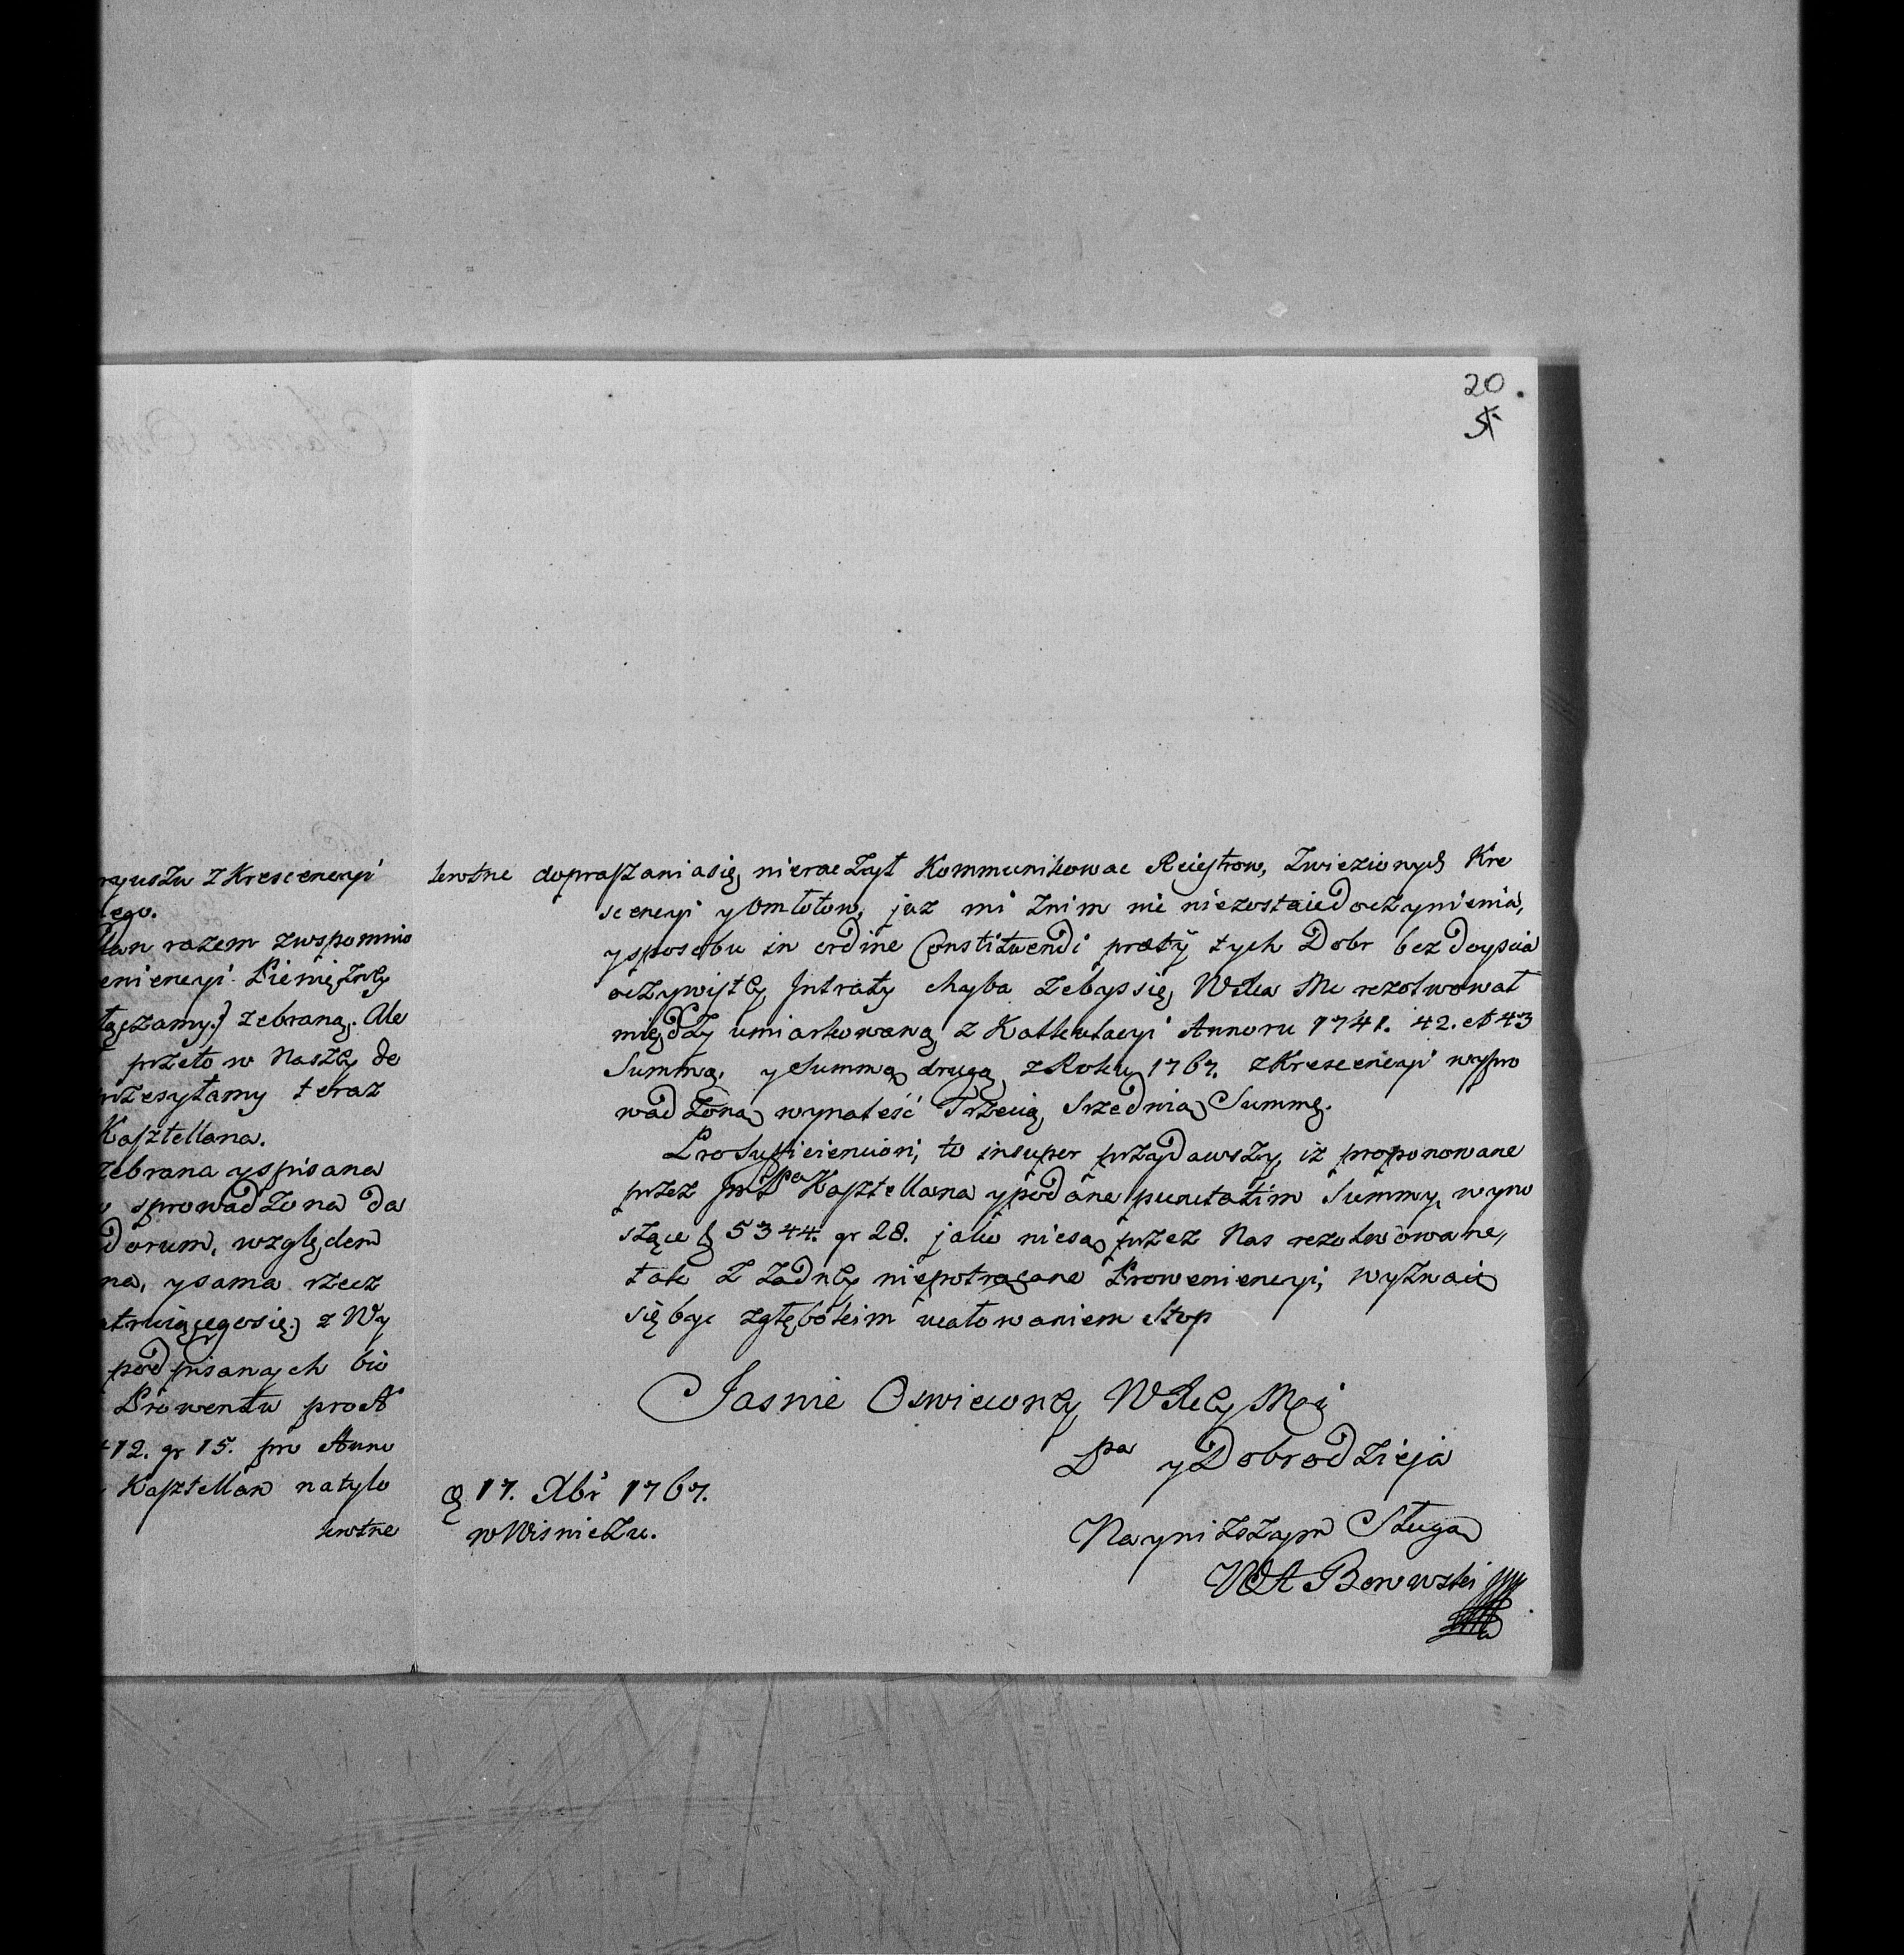 20.
ryuszu z Krescencyi
ego.
llan razem zwspomnio
eniencyi Pieniężney
łączamy.) zebraną. Ale
przeto w Naszey de
rzesyłamy teraz
Kasztellana.
zebrana yspisana
sprowadzona da
dorum, względem
na, ysama rzecz
atwiaiącegosię.) z Wy
podpisanych bio
Prowentu pro A
412. gr 15. pro Anno
Kasztellan natylo
krotne
krotne dopraszaniasię, nieraczył Kommunikowac Reiestrow, Zwiezionych Kre
scencyi yOmłotow, jaz mi Znim nic niezostaiedoczynienia,
ysposobu in ordine Constituendi prætÿ tych Dobr bez doyscia
oczywistey Jntraty chyba Zebyssię, WXca Mc rezolwował
między umiarkowaną z Kalkulacyi Annoru 1741. 42. et 43
Summą, ysummą drugą z Roku 1767. zKrescencyi wypro
wadzoną wynalesć Trzecią, Srzednią Summę.
to insuper przydawszy, iż proponowane
przez JmPa Kasztellana ypodane punctatim Summy, wyno
szące 5344. gr 28. jako niesą przez Nas rezolwowane,
tak z Zadney niepotrącane Prowenencyi, wyznaię
się byc zgłębokim ucałowaniem Stop
Jasnie Oswieconey WXcey Mci
Pa yDobrodzieja
17. Xbr 1767.
w Wisniczu.
Nayniższym Sługą
WA Borowski